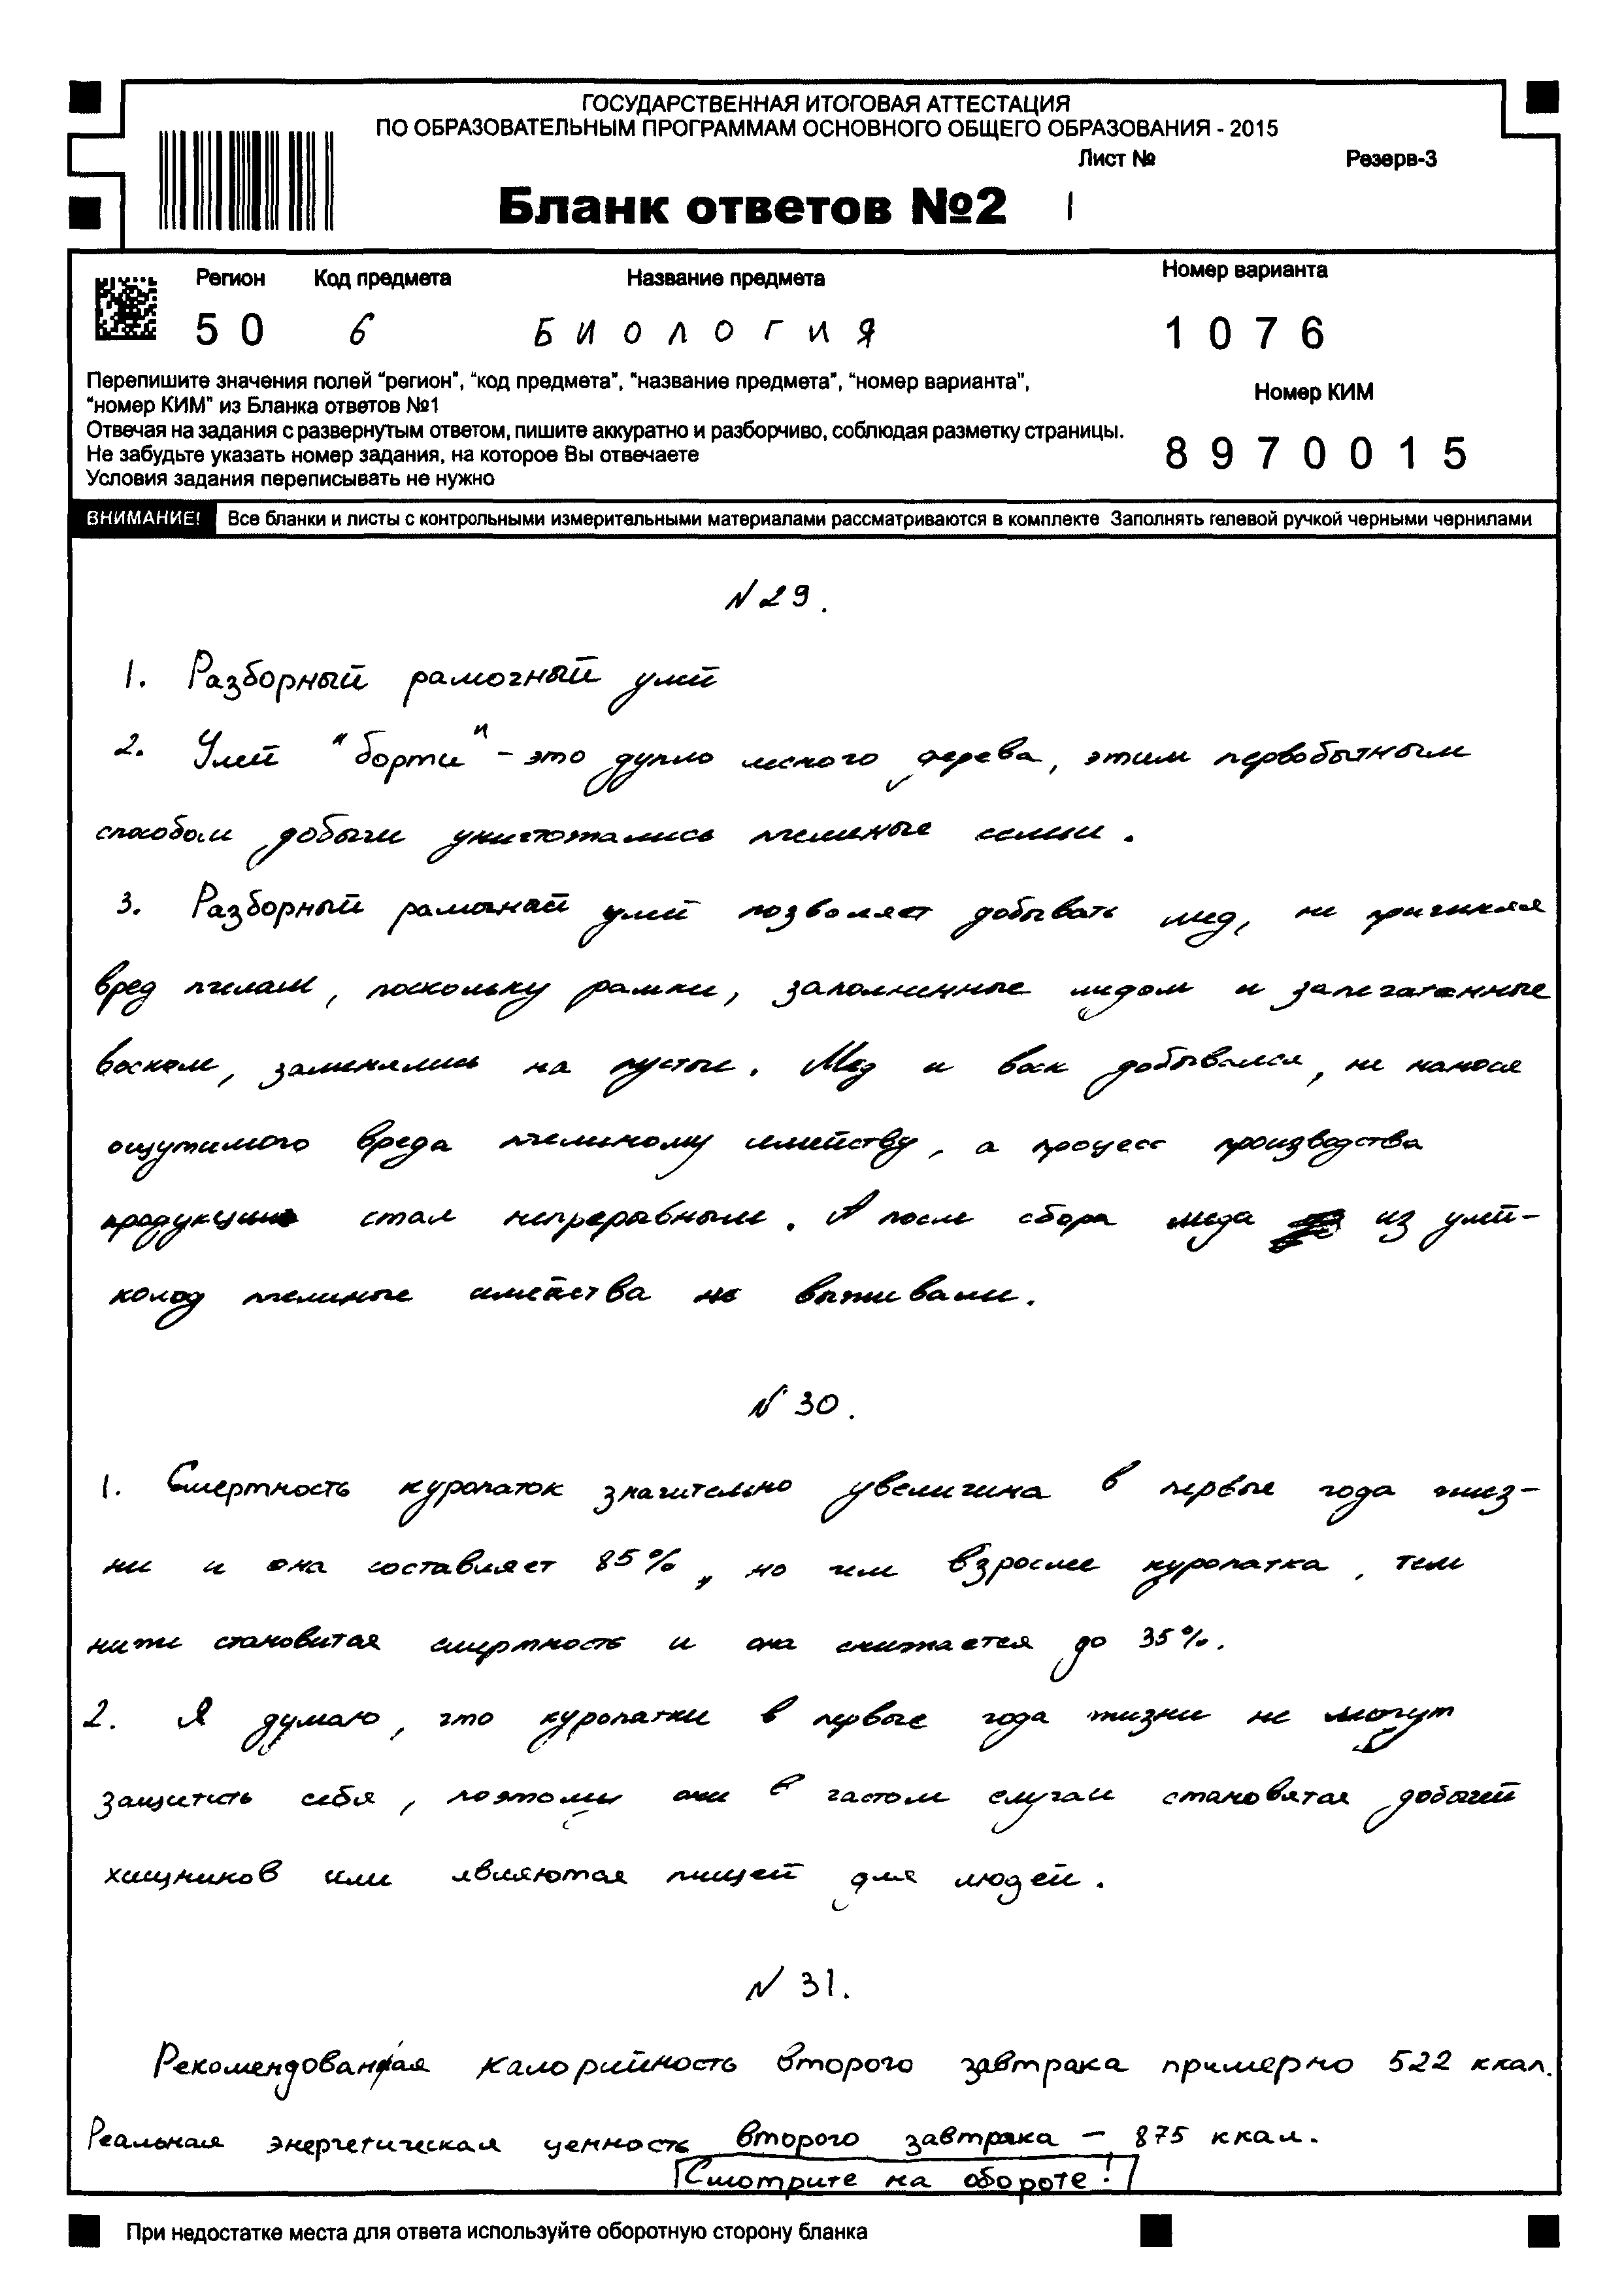 ГОСУДАРСТВЕННАЯ ИТОГОВАЯ АТТЕСТАЦИЯ
ПО ОБРАЗОВАТЕЛЬНЫМ ПРОГРАММАМ ОСНОВНОГО ОБЩЕГО ОБРАЗОВАНИЯ - 2015
Лист № Резерв-3
Бланк ответов №2 1
Регион Код предмета Название предмета Номер варианта
50 6 БИОЛОГИЯ 1076
Перепишите значения полей "регион", "код предмета", "название предмета", "номер варианта",
"номер КИМ" из Бланка ответов №1
Номер КИМ
Отвечая на задания с развернутым ответом, пишите аккуратно и разборчиво, соблюдая разметку страницы.
Не забудьте указать номер задания, на которое Вы отвечаете
8970015
Условия задания переписывать не нужно
ВНИМАНИЕ! Все бланки и листы с контрольными измерительными материалами рассматриваются в комплекте Заполнять гелевой ручкой черными чернилами
N 29.
1. Разборный рамочный улей
2. Улей "борти" - это дупло лесного дерева, этим первобытным
способом добычи уничтожались пчелиные семьи.
3. Разборный рамочный улей позволяет добывать мед, не причиняя
вред пчелам, поскольку рамки, заполненные медом и запечатанные
воском, заменялись на пустые. Мед и воск добывался, не нанося
ощутимого вреда пчелиному семейству, а процесс производства
продукции стал непрерывным. А после сбора меда из улей-
колод пчелиные семейства не выживали.
N 30.
1. Смертность куропаток значительно увеличина в первые года жиз-
ни и она составляет 85%, но чем взрослее куропатка, тем
ниже становится смертность и она снижается до 35%.
2. Я думаю, что куропатки в первые года жизни не могут
защитить себя, поэтому они в частом случаи становятся добычей
хищников или являются пищей для людей.
N 31.
Рекомендованная калорийность второго завтрака примерно 522 ккал.
Реальная энергетическая ценность второго завтрака - 875 ккал.
Смотрите на обороте!
При недостатке места для ответа используйте оборотную сторону бланка